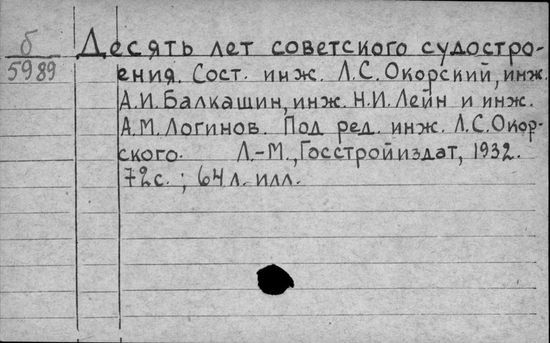 б
5989
Десять лет советского судостро-
ения. Сост. инж. Л.С. Окорский, инж.
А.И. Балкашин, инж. Н.И. Лейн и инж.
А.М. Логинов. Под ред. инж. Л.С. Окор-
ского. Л.-М., Госстройиздат, 1932.
72с.; 64 л. илл.